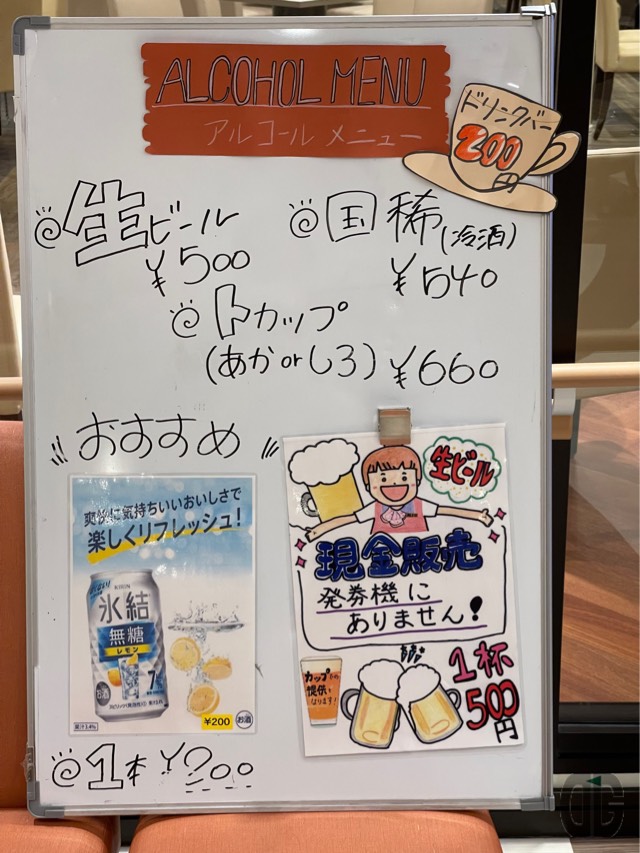 ALCOHOL MENU
アルコール メニュー
ドリンクバー
200
円
生ビール
¥500
国稀(冷酒)
¥540
トカップ
(あかorしろ) ¥660
おすすめ
爽快に気持ちいいおいしさで
楽しくリフレッシュ!
KIRIN
氷結
無糖
レモン
7
お酒
¥200
お酒
1本 ¥200
生ビール
現金販売
発券機に
ありません!
カップでの
提供に
なります!
1杯
500
円